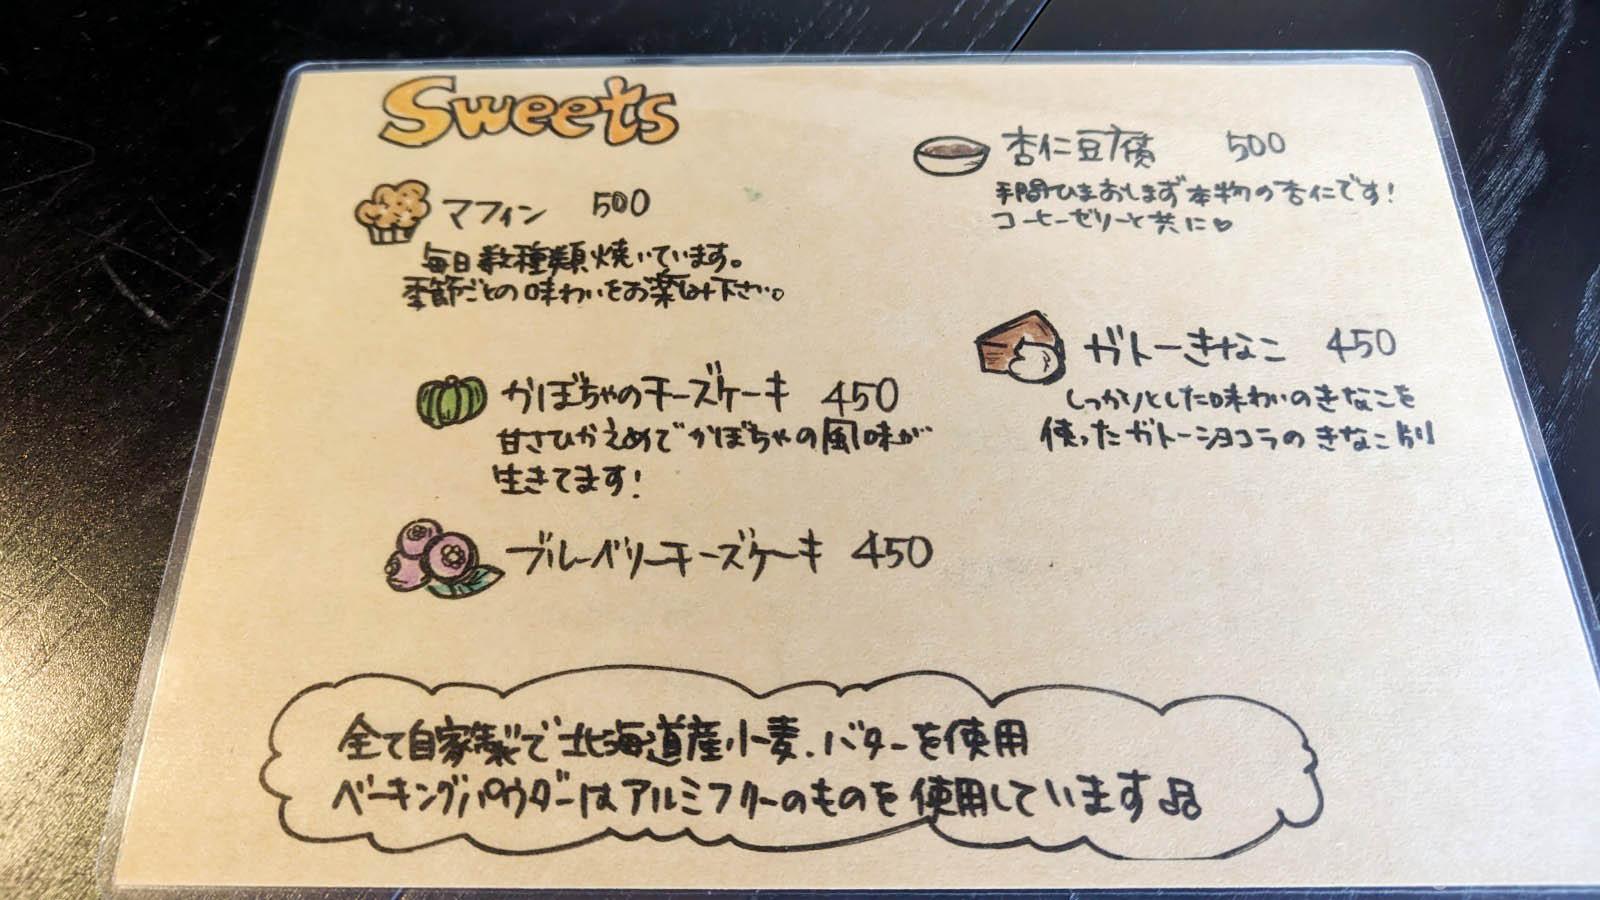 Sweets
マフィン 500
毎日数種類焼いています。
季節ごとの味わいをお楽しみ下さい。
かぼちゃのチーズケーキ 450
甘さひかえめでかぼちゃの風味が
生きてます!
ブルーベリーチーズケーキ 450
杏仁豆腐 500
手間ひまおしまず本物の杏仁です!
コーヒーゼリーと共に♡
ガトーきなこ 450
しっかりとした味わいのきなこを
使ったガトーショコラのきなこ版
全て自家製で北海道産小麦、バターを使用
ベーキングパウダーはアルミフリーのものを使用しています